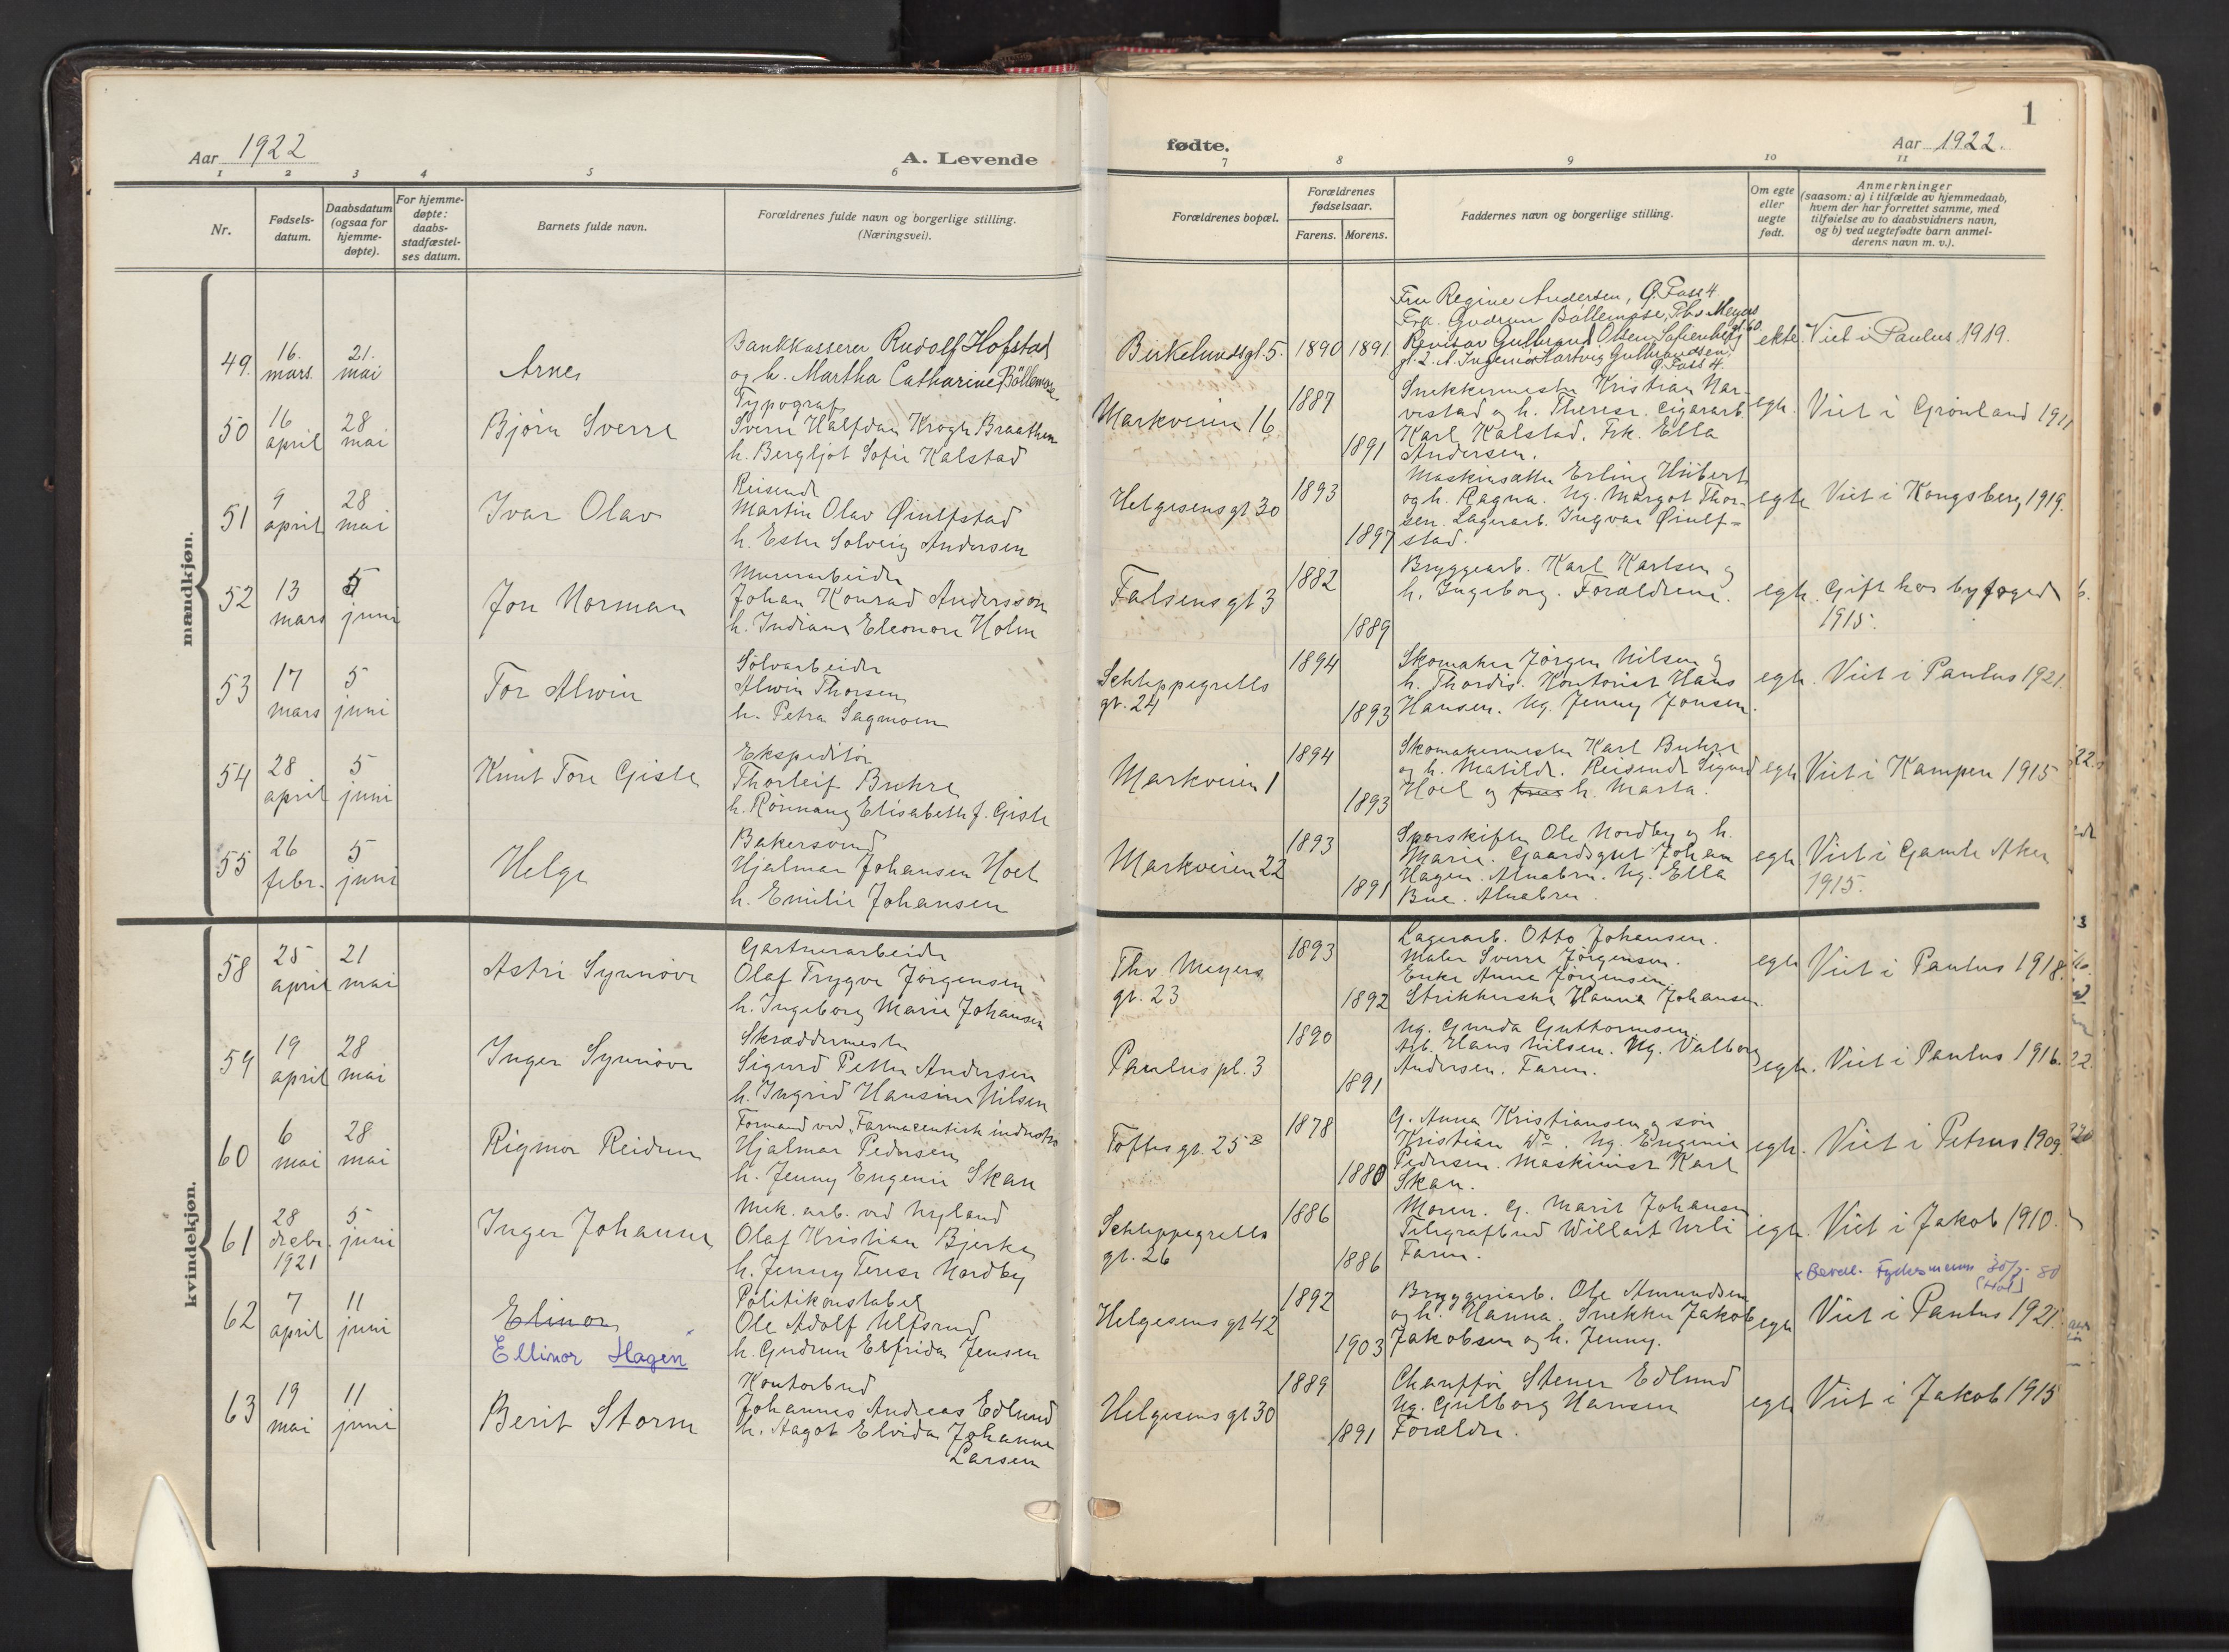 1
Aar 1922
A. Levende
fødte.
Aar 1922.
1 2 3 4 5 6 7 8 9 10 11
Nr.
Fødsels-
datum.
Daabsdatum
(ogsaa for
hjemme-
døpte).
For hjemme-
døpte:
daabs-
stadfæstel-
ses datum.
Barnets fulde navn.
Forældrenes fulde navn og borgerlige stilling.
(Næringsvei).
Forældrenes bopæl.
Forældrenes
fødselsaar.
Farens. Morens.
Faddernes navn og borgerlige stilling.
Om egte
eller
uegte
født.
Anmerkninger
(saasom: a) i tilfælde av hjemmedaab,
hvem der har forrettet samme, med
tilføielse av to daabsvidners navn,
og b) ved uegtefødte barn anmel-
derens navn m. v.).
mændkjøn.
49.
16.
mars.
21.
mai
Arne
Bankkasserer Rudolf Hofstad
og h. Martha Catharine Böllemose.
Birkelundsgt. 5.
1890
1891.
Fru Regine Andersen, G. Pass 4
Frk. Gudrun Böllemose, Thv Meyers
gt. 60.
Revisor Gulbrand Olsen, Sofienberg
gt. 2. A. Ingeniør Hartvig Gulbrandsen,
G. Pass 4.
ekte.
Viet i Paulus 1919.
50
16
april
28
mai
Bjørn Sverre
Typograf
Sverre Halfdan Krogh Braathen
h. Bergljot Sofie Kalstad
Markveien 16
1887
1891
Snekkermester Kristian Nar-
vestad og h. Therese. Cigararb.
Karl Kalstad. Frk. Ella
Andersen.
egte.
Viet i Grønland 1911
51
9
april
28
mai
Ivar Olav
Reisende
Martin Olav Øiulfstad
h. Ester Solveig Andersen
Helgesens gt 30
1893
1897
Maskinsætter Erling Hübert
og h. Ragna. Ug. Margot Thor-
sen. Lagerarb. Ingvar Øiulf-
stad.
egte
Viet i Kongsberg 1919.
52
13
mars
5
juni
Jon Norman
Murerarbeider
Johan Konrad Andersson
h. Indiana Eleonore Holm
Falsens gt 3
1882
1889
Bryggearb. Karl Karlsen og
h. Ingeborg. Forældrene.
egte.
Gift hos byfoged
1915.
53
17
mars
5
juni
Tor Alwin
Sølvarbeider
Alwin Thorsen
h. Petra Sagmoen
Schleppegrells
gt. 24
1894
1893
Skomaker Jørgen Nilsen og
h. Thordis. Kontorist Hans
Hansen. Ug. Jenny Jonsen.
egte.
Viet i Paulus 1921.
54
28
april
5
juni
Knut Tore Gisle
Ekspeditør
Thorleif Buhre
h. Rønnaug Elisabeth f. Gisle
Markveien 1
1894
1893
Skomakermester Karl Buhre
og h. Matilde. Reisende Sigurd
Hoel og frue h. Marta.
egte
Viet i Kampen 1915
55
26
febr.
5
juni
Helge
Bakersvend
Hjalmar Johansen Hoel
h. Emilie Johansen
Markveien 22
1893
1891
Sporskifter Ole Nordby og h.
Marie. Gaardsgut Johan
Hagen. Alnabru. Ug. Ella
Bue. Alnabru.
egte
Viet i Gamle Aker
1915.
kvindekjøn.
58
25
april
21
mai
Astri Synnøve
Gartnerarbeider
Olaf Trygve Jørgensen
h. Ingeborg Marie Johansen
Thv Meyers
gt. 23
1893
1892
Lagerarb. Otto Johansen.
Maler Sverre Jørgensen.
Enke Anne Jørgensen,
Strikkerske Hanna Johansen
egte
Viet i Paulus 1918.
59
19
april
28
mai
Inger Synnøve
Skræddermester
Sigurd Petter Andersen
h. Ingrid Hansine Nilsen
Paulus pl. 3
1890
1891
Ug. Gunda Guttormsen.
Arb. Hans Nilsen. Ug. Valborg
Andersen. Faren.
egte.
Viet i Paulus 1916.
60
6
mai
28
mai
Rigmor Reidun
Formand ved "Farmaceutisk industri
Hjalmar Pedersen
h. Jenny Eugenie Skau
Toftes gt. 25 B
1878
1880
G. Anna Kristiansen og søn
Kristian do. Ug. Eugenie
Pedersen. Maskinist Karl
Skau.
egte.
Viet i Petrus 1909.
61
28
decbr.
1921
5
juni
Inger Johanne
Mek. arb. ved Nyland
Olaf Kristian Bjerke
h. Jenny Terese Nordby
Schleppegrells
gt. 26
1886
1886
Moren. G. Marit Johansen
Telegrafbud Willart Urli
Faren.
egte.
Viet i Jakob 1910.
62
7
april
11
juni
Elinor
Ellinor Hagen
Politikonstabel
Ole Adolf Ulfsrud
h. Gudrun Elfrida Jensen
Helgesens gt 42
1892
1903
Bryggeriarb. Ole Amundsen
og h. Hanna, Snekker Jakob
Jakobsen og h. Jenny.
egte
Viet i Paulus 1921.
63
19
mai
11
juni
Berit Storm
Kontorbud
Johannes Andreas Edlund
h. Aagot Elvida Johanne
Larsen
Helgesens gt 30
1889
1891
Chauffør Stener Edlund
Ug. Gulborg Hansen
Forældre.
egte
Viet i Jakob 1915